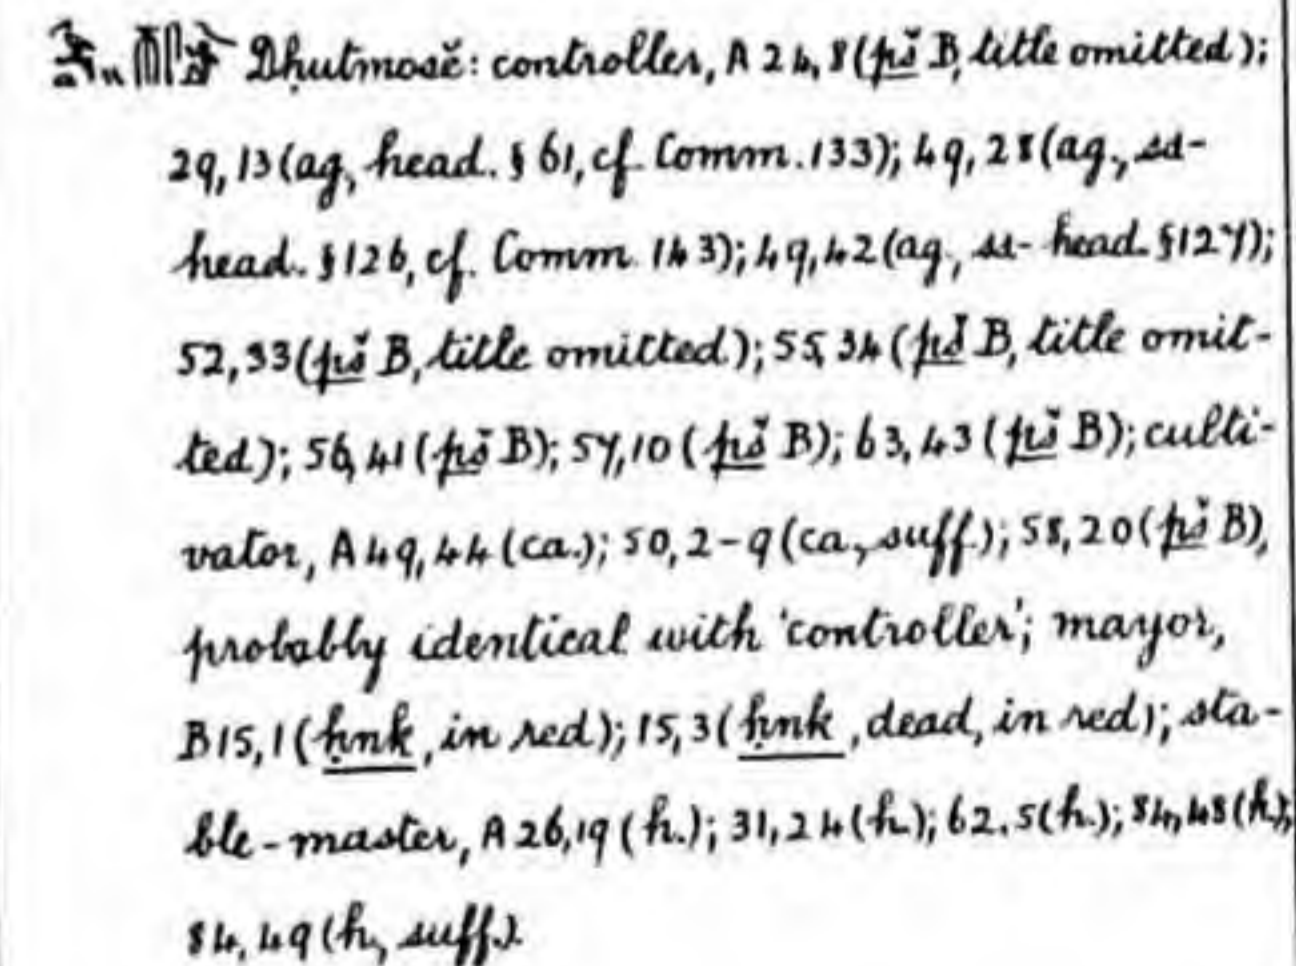 Dḥutmosĕ: controller, A 24, 8 (pš B, title omitted);
29, 13 (ag., head. § 61, cf. Comm. 133); 49, 28 (ag., ss-
head. § 126, cf. Comm. 143); 49, 42 (ag., ss-head. § 127);
52, 33 (pš B, title omitted); 55, 34 (pš B, title omit-
ted); 56, 41 (pš B); 57, 10 (pš B); 63, 43 (pš B); culti-
vator, A 49, 44 (ca.); 50, 2-9 (ca., suff.); 58, 20 (pš B),
probably identical with 'controller'; mayor,
B 15, 1 (ḥnk, in red); 15, 3 (ḥnk, dead, in red); sta-
ble-master, A 26, 19 (h.); 31, 24 (h.); 62. 5 (h.); 84, 48 (h.);
84, 49 (h., suff.).